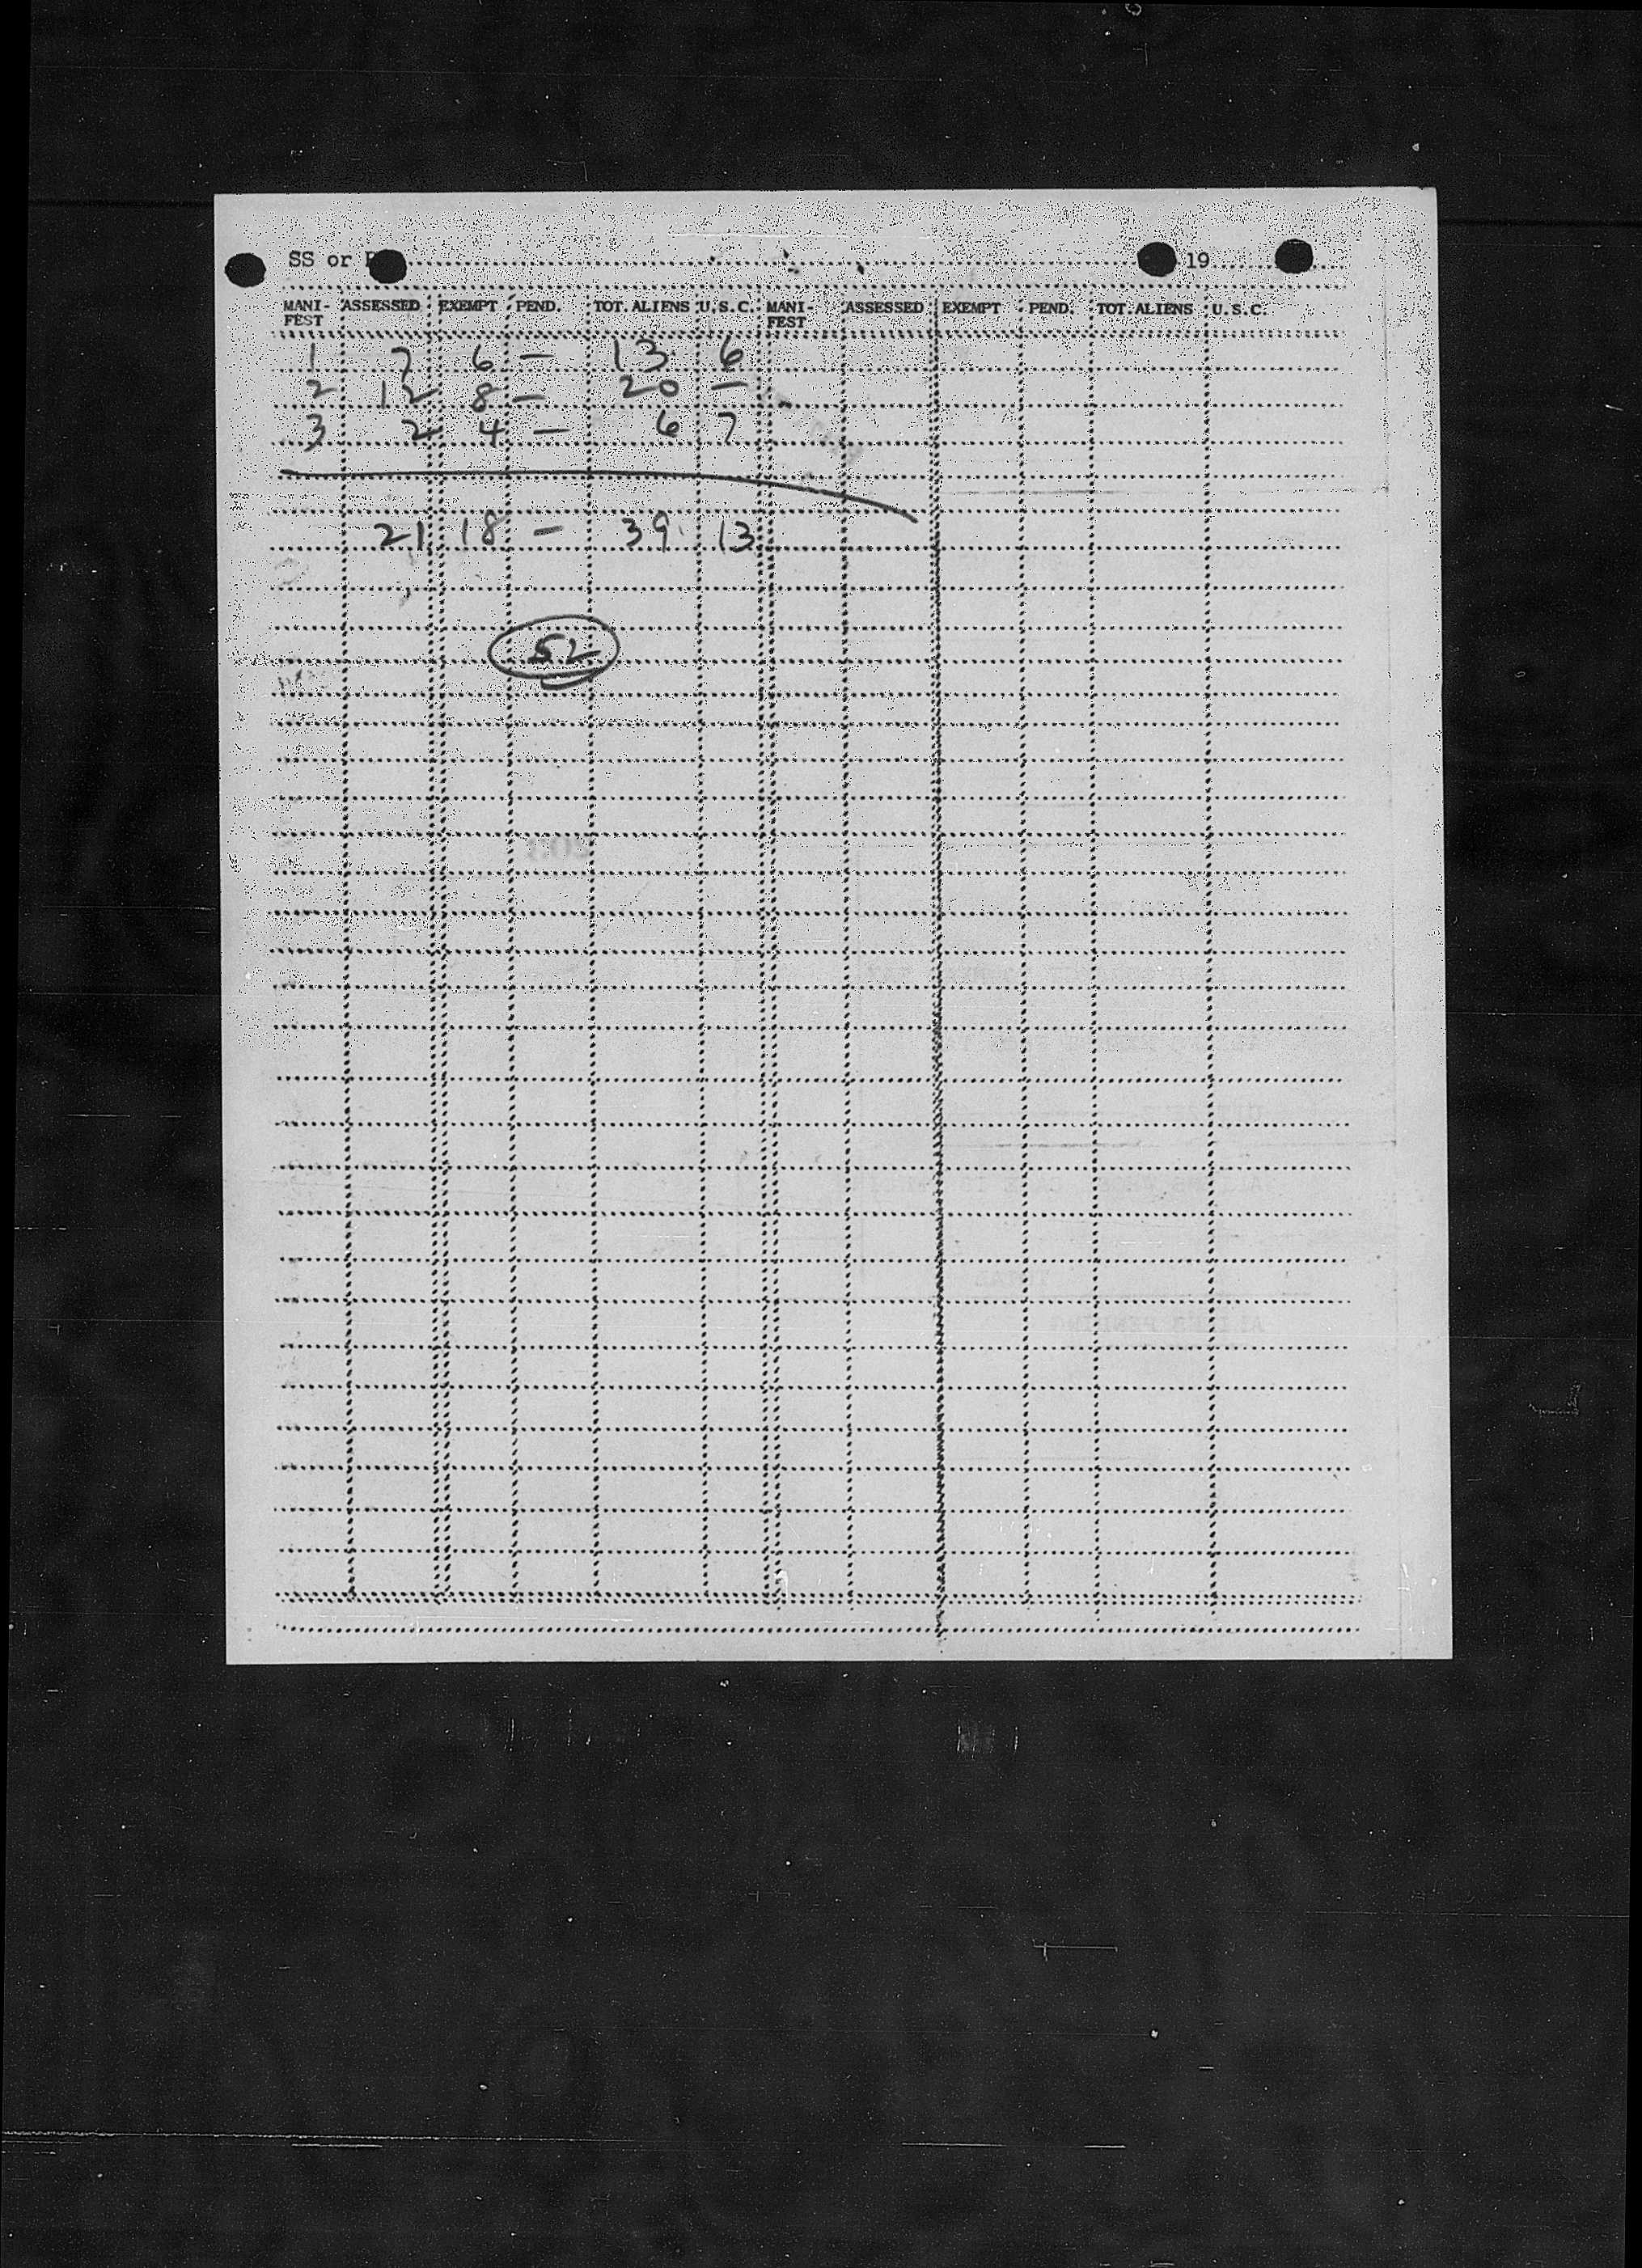 SS or 19
MANI-FEST ASSESSED EXEMPT PEND. TOT. ALIENS U.S.C. MANI-FEST ASSESSED EXEMPT PEND. TOT. ALIENS U.S.C.
1 7 6 — 13 6
2 12 8 — 20 —
3 2 4 — 6 7
21 18 — 39 13
52